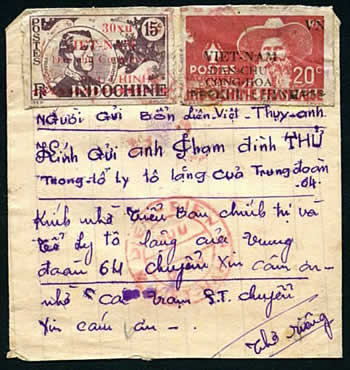 POSTES
30xu
15c
VIỆT-NAM
BINH
RF INDOCHINE
VN
VIỆT-NAM
DÂN-CHỦ
CỘNG-HÒA
POSTES
20c
INDOCHINE FRANÇAISE
Người Gửi Bốn Liên-Việt-Thụy-anh
Kính Gửi anh Phạm đình THỨ
Trong tổ ly tô lặng của Trung đoàn
64.
Kính nhờ Tiểu Ban chính trị và
Tổ Ly tô lặng của trung
đoàn 64 chuyển Xin cám ơn-
nhờ các trạm S.T. chuyển
Xin cám ơn-.
Thơ riêng